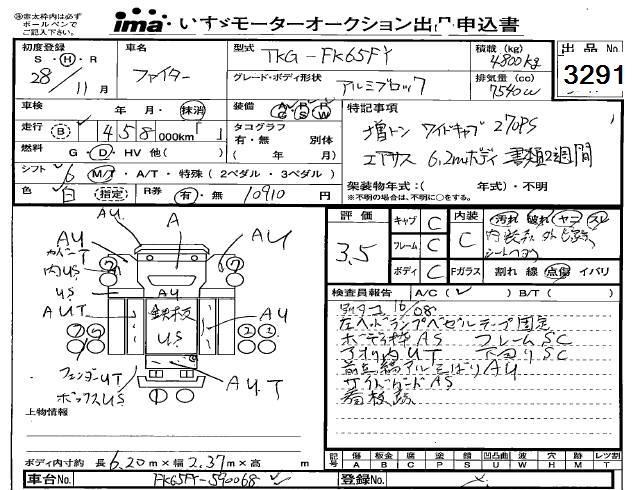 ※太枠内は必ず
ボールペンで
ご記入下さい。
ima いすゞモーターオークション出品申込書
初度登録 S・H・R 28/11月
車名 ファイター
型式 TKG-FK65FY
グレード・ボディ形状 アルミブロック
積載(kg) 4800kg
排気量(cc) 7540cc
出品No 3291
車検 年・月・抹消
装備 A/C P/S P/W S/R
走行 B 458 000km「 」
タコグラフ 有・無 別体 ( 年 月)
燃料 G・D・HV 他( )
シフト 6 M/T・A/T・特殊(2ペダル・3ペダル)
色 白 指定 R券 有・無 10910円
特記事項
増トン ワイドキャブ 270PS
エアサス 6.2mボディ 書類2週間
架装物年式:( 年式)・不明
※不明の場合は、不明に○をする。
AU
A
AU
カバーT
内US
US
AUT
AU
鉄板
US
AU
フェンダーUT
ボックスUS
AUT
上物情報
ボディ内寸約 長6.20m×幅2.37m×高 m
評価 3.5
キャブ C
フレーム C
ボディ C
内装 C
Fガラス
汚れ 破れ ヤニ スレ
割れ 線 点傷 イバリ
検査員報告 A/C(✓) B/T( )
デジタコ 16/08
左ヘッドランプベゼルテープ固定
ボディ枠AS フレームSC
アオリ内UT 下回りSC
サイドガードAS
看板跡
記号 傷A 板金B 腐食C 塗P 錆S 凹凸曲U 波W 穴H 跡M レツ割T
車台No. FK65FY-590068
登録No.